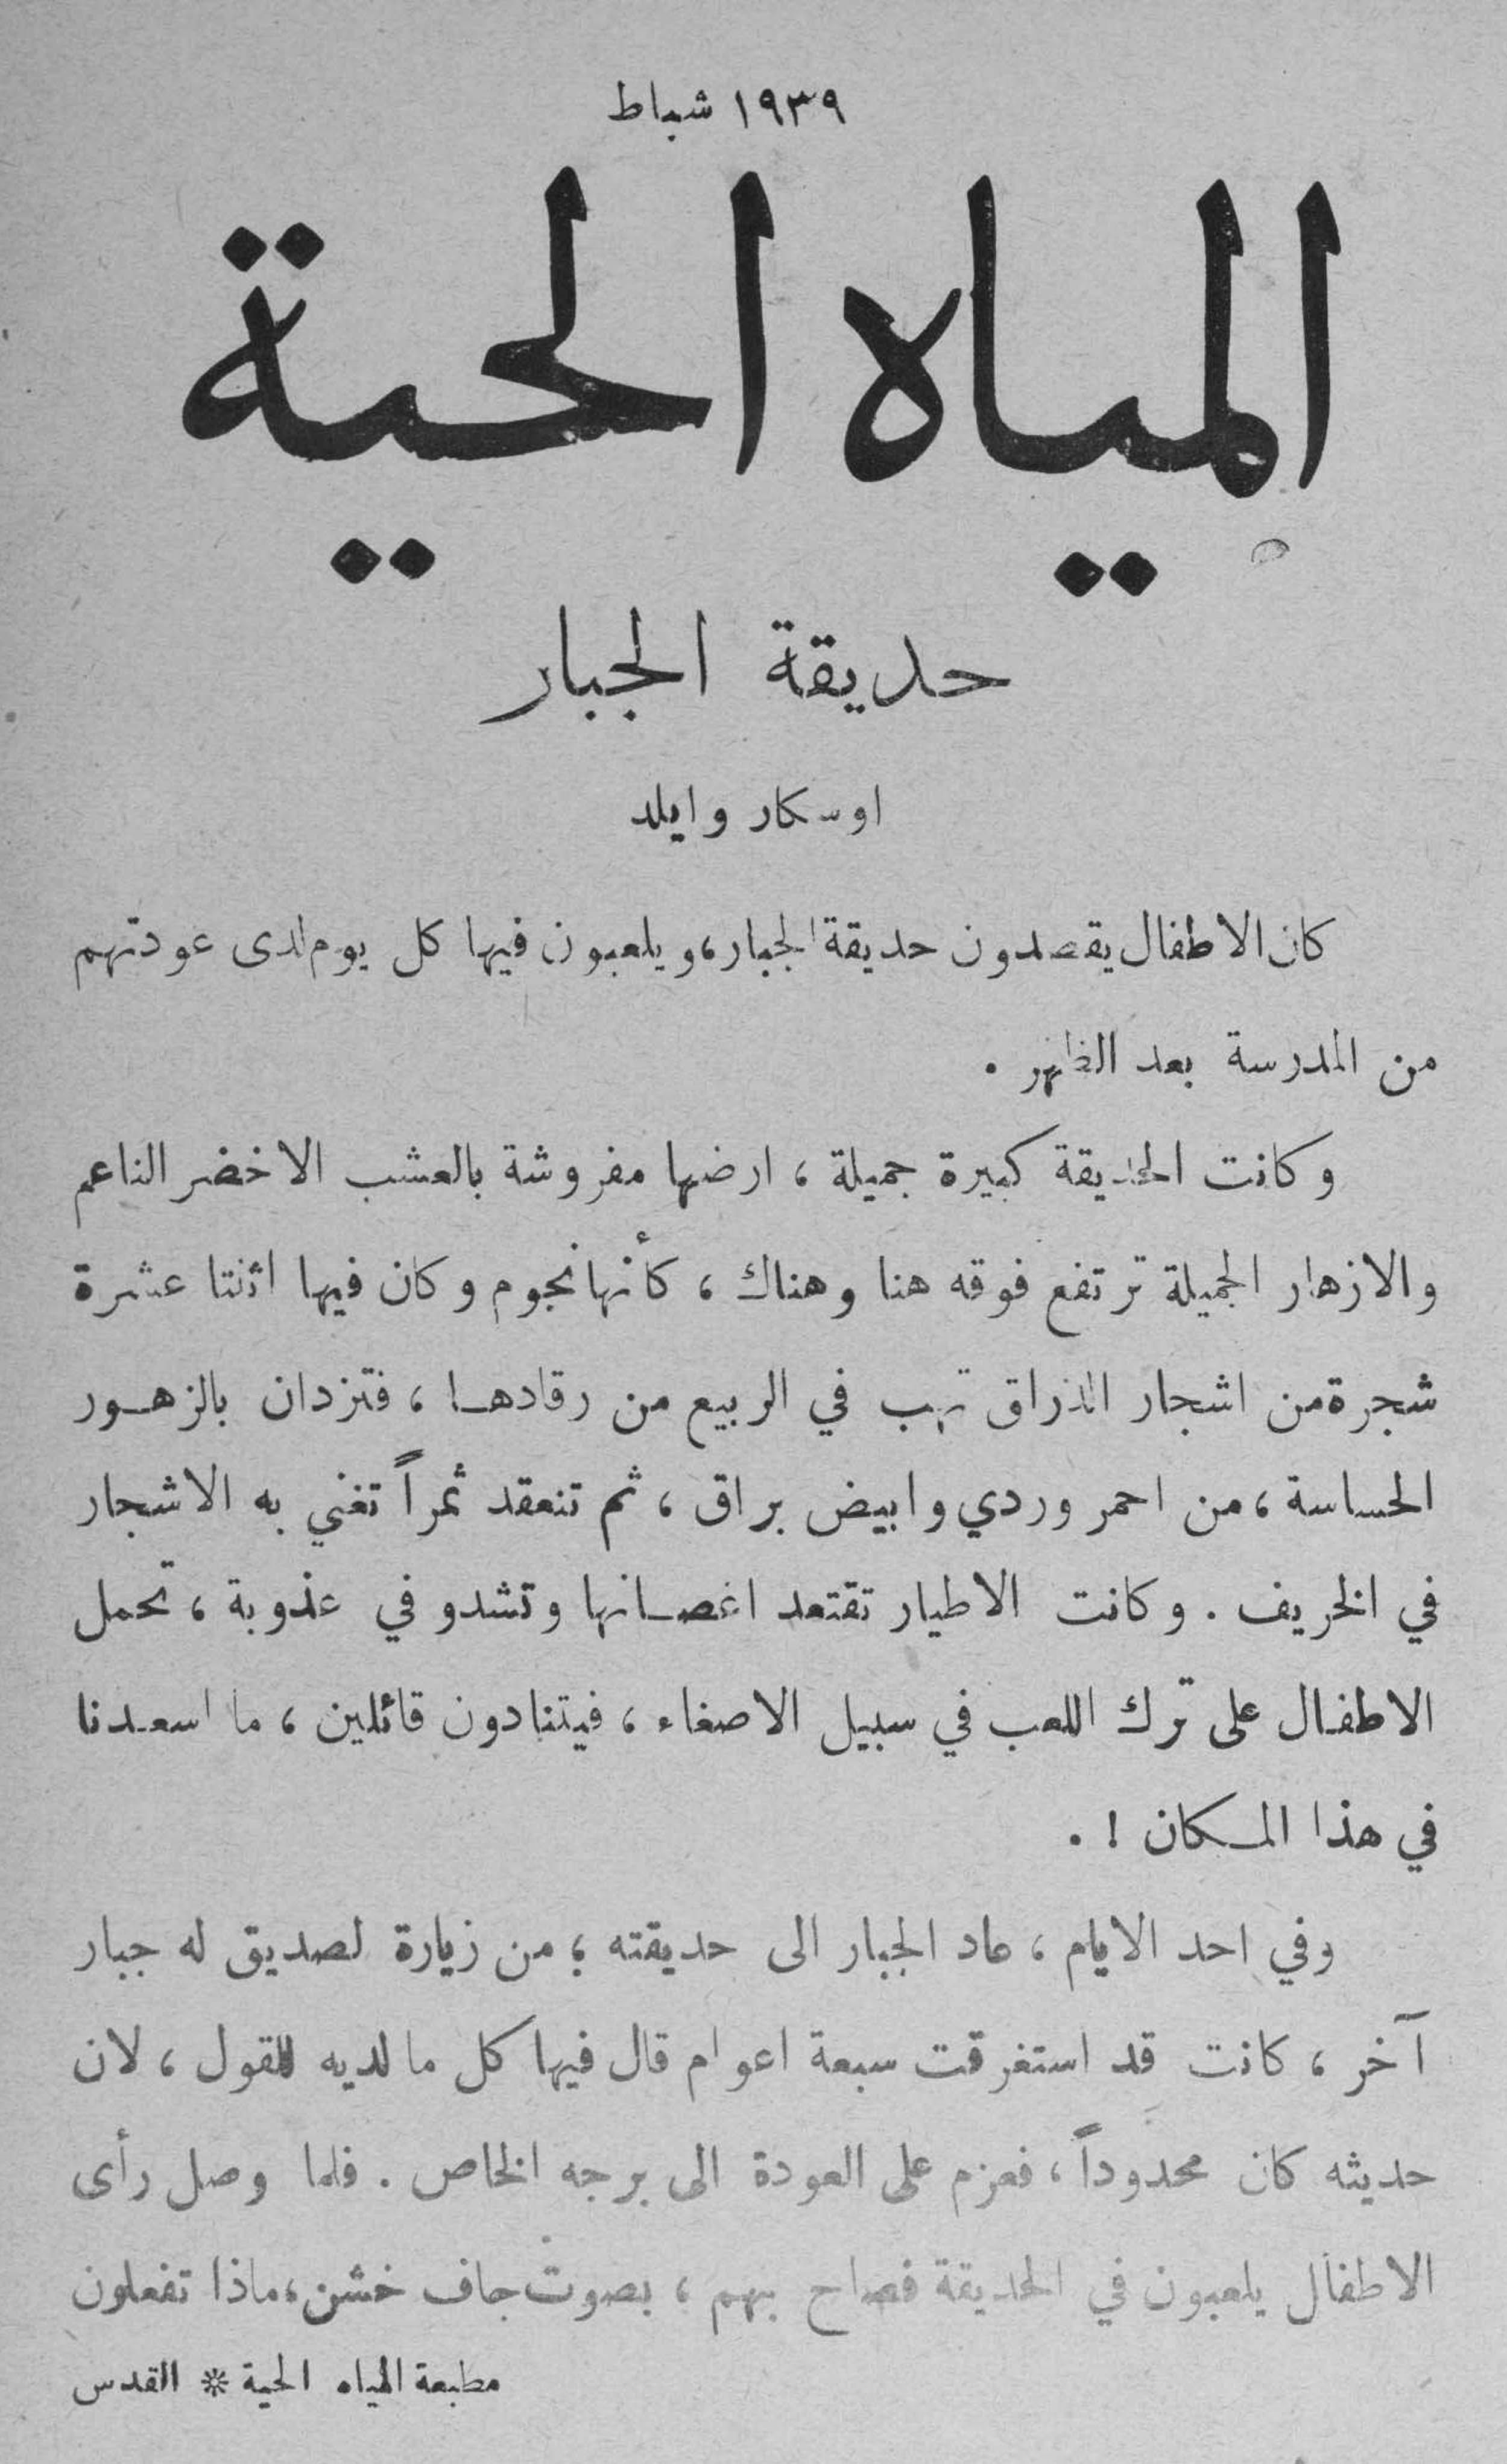 ١٩٣٩ شباط
المياه الحية
حديقة الجبار
اوسكار وايلد
كان الاطفال يقصدون حديقة الجبار، ويلعبون فيها كل يوم لدى عودتهم
من المدرسة بعد الظهر .
وكانت الحديقة كبيرة جميلة ، ارضها مفروشة بالعشب الاخضر الناعم
والازهار الجميلة ترتفع فوقه هنا وهناك ، كأنها نجوم وكان فيها اثنتا عشرة
شجرة من اشجار الدراق تهب في الربيع من رقادها ، فتزدان بالزهور
الحساسة ، من احمر وردي وابيض براق ، ثم تنعقد ثمراً تغني به الاشجار
في الخريف . وكانت الاطيار تقتعد اغصانها وتشدو في عذوبة ، تحمل
الاطفال على ترك اللعب في سبيل الاصغاء ، فيتنادون قائلين ، ما اسعدنا
في هذا المكان ! .
وفي احد الايام ، عاد الجبار الى حديقته ؛ من زيارة لصديق له جبار
آخر ، كانت قد استغرقت سبعة اعوام قال فيها كل ما لديه للقول ، لان
حديثه كان محدوداً ، فعزم على العودة الى برجه الخاص . فلما وصل رأى
الاطفال يلعبون في الحديقة فصاح بهم ، بصوت جاف خشن ، ماذا تفعلون
مطبعة المياه الحية * القدس